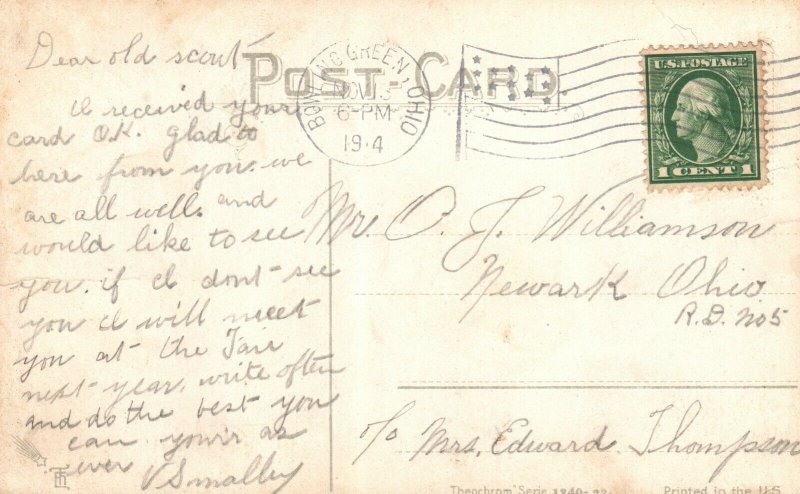 Dear old scout
POST-CARD.
BOWLING GREEN, OHIO
NOV
6-PM
1914
U.S. POSTAGE
1 CENT 1
I received your
card O.K. glad to
here from you. we
are all well. and
would like to see
you. if I dont see
you I will meet
you at the Fair
next year. write often
and do the best you
can yours as
ever V Smalley
Mr. O. J. Williamson
Newark Ohio
R.D. No 5
c/o Mrs. Edward Thompson
"Thenchrom" Serie 1240
Printed in the U.S.